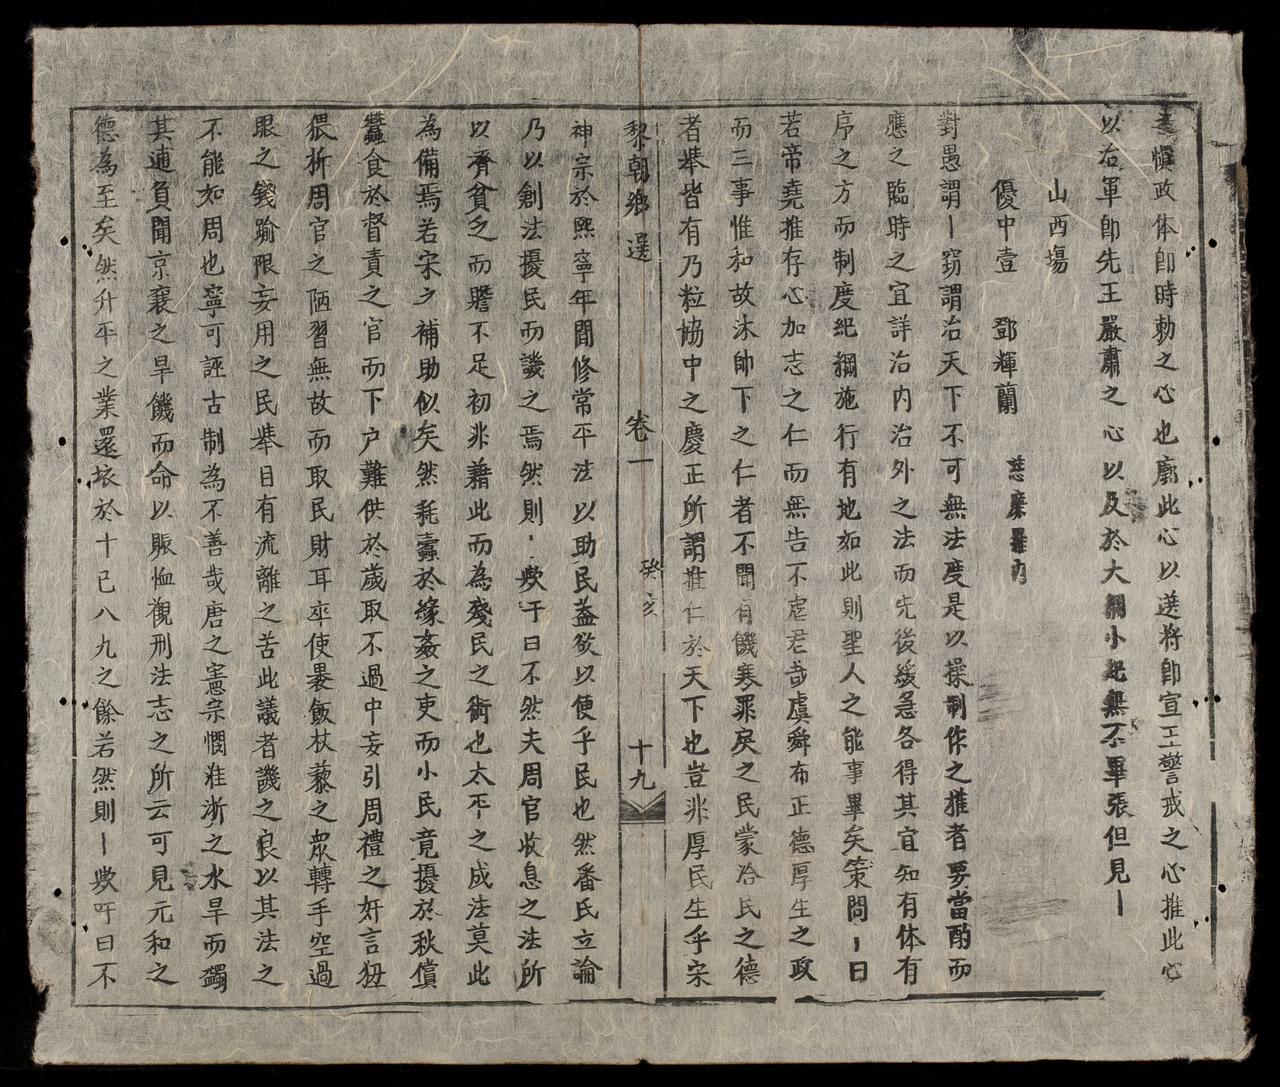 慎政体即時勅之心也廓此心以選將帥宣王警戒之心推此心
以治軍即先王嚴肅之心以及於大綱小紀無不畢張但見〡
山西場
優中壹 鄧輝𬞟 慈廉羅內
對愚謂〡窃謂治天下不可無法度是以操制作之權者要當酌而
應之臨時之宜詳治内治外之法而先後緩急各得其宜知有体有
序之方而制度紀綱施行有地如此則聖人之能事畢矣策問〡曰
若帝堯推存心加志之仁而無告不虐君哉虞舜布正德厚生之政
而三事惟和故沐帥下之仁者不聞有饑寒罪戾之民蒙洽民之德
者舉皆有乃粒協中之慶正所謂推仁於天下也豈非厚民生乎宋
黎朝鄉選 卷一 癸亥 十九
神宗於熙寧年間修常平法以助民蓋欲以便乎民也然番氏立論
乃以創法擾民而譏之焉然則〡歟于曰不然夫周官收息之法所
以濟貧乏而贍不足初非藉此而為殘民之術也太平之成法莫此
為備焉若宋之補助似矣然耗蠹於緣姦之吏而小民竟擾於秋償
蠶食於督責之官而下户難供於歲取不過中妄引周禮之奸言狃
猥折周官之陋習無故而取民財耳卒使暴飯杖藜之眾轉手空過
眼之錢踰限妄用之民舉目有流離之苦此議者譏之良以其法之
不能如周也寧可誣古制為不善哉唐之憲宗憫淮浙之水旱而蠲
其逋負聞京襄之旱饑而命以賑恤觀刑法志之所云可見元和之
德為至矣然升平之業還坏於十已八九之餘若然則〡歟吁曰不